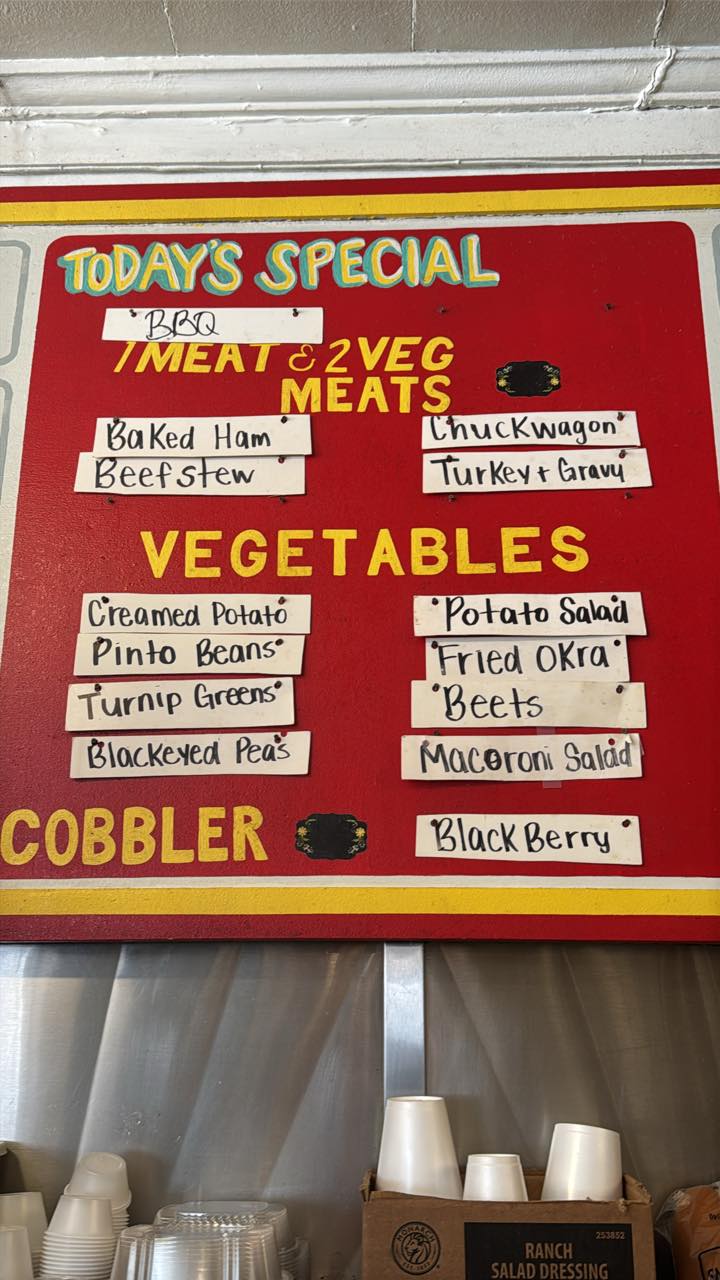 TODAY'S SPECIAL
BBQ
1 MEAT & 2 VEG
MEATS
Baked Ham
Chuckwagon
Beef stew
Turkey + Gravy
VEGETABLES
Creamed Potato
Potato Salad
Pinto Beans
Fried Okra
Turnip Greens
Beets
Blackeyed Peas
Macoroni Salad
COBBLER
BlackBerry
MONARCH
253852
RANCH
SALAD DRESSING